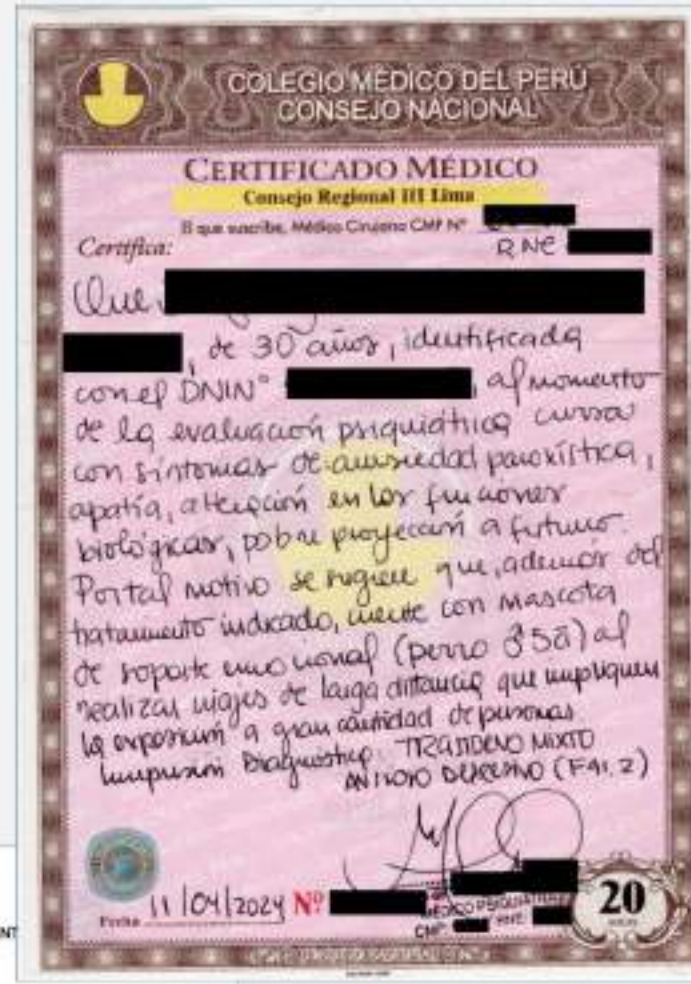 COLEGIO MÉDICO DEL PERÚ
CONSEJO NACIONAL
CERTIFICADO MÉDICO
Consejo Regional III Lima
El que suscribe, Médico Cirujano CMP Nº
RNE
Certifica:
Que
, de 30 años, identificada
con el DNI N° , al momento
de la evaluación psiquiátrica cursa
con síntomas de ansiedad paroxística,
apatía, alteración en las funciones
biológicas, pobre proyección a futuro.
Por tal motivo se sugiere que, además del
tratamiento indicado, cuente con mascota
de soporte emocional (perro ) al
realizar viajes de larga distancia que impliquen
la exposición a gran cantidad de personas.
Impresión Diagnóstica: TRASTORNO MIXTO
ANSIOSO DEPRESIVO (F41.2)
Fecha 11/04/2024 Nº
MÉDICO PSIQUIATRA
CMP RNE
20
NT